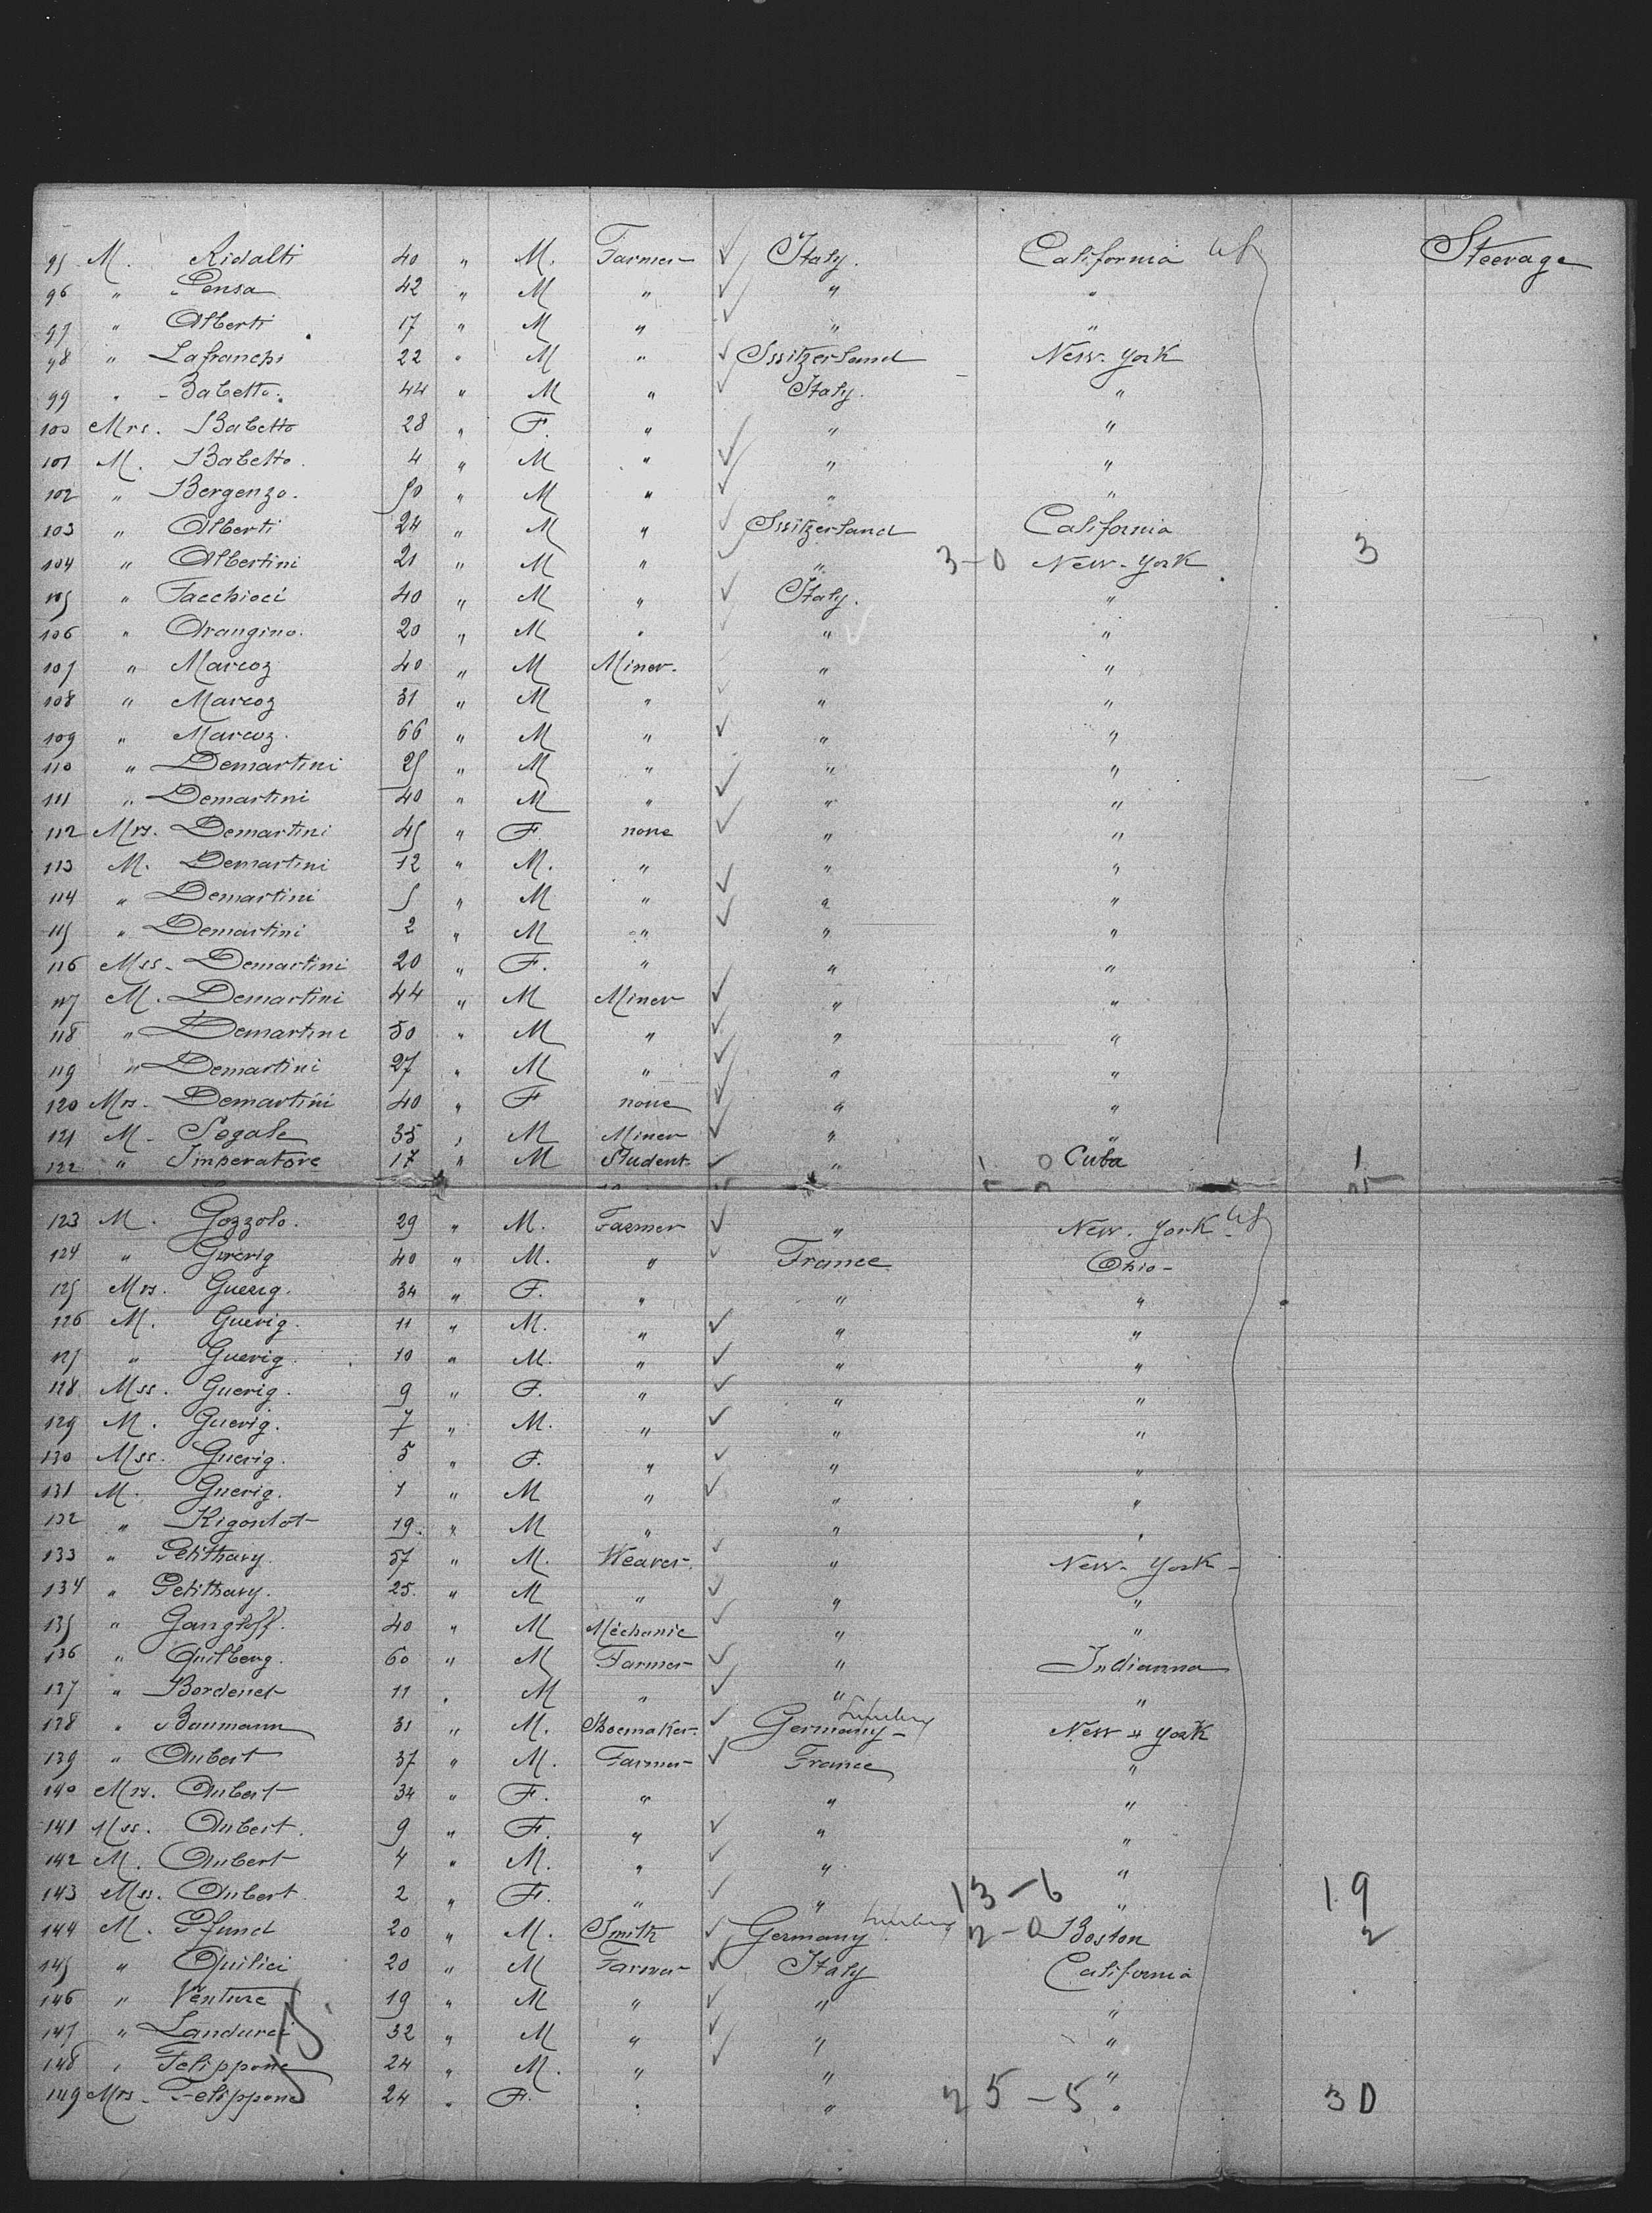 95 M. Ridalti 40 " M. Farmer ✓ Italy. California Steerage
96 " Censa 42 " M " ✓ " "
97 " Alberti 17 " M " ✓ " "
98 " Lafranchi 22 " M " ✓ Switzerland New-York
99 " Babetto 44 " M " ✓ Italy. "
100 Mrs. Babetto 28 " F. " " "
101 M. Babetto. 4 " M " ✓ " "
102 " Bergenzo. 50 " M " ✓ " "
103 " Alberti 24 " M " ✓ Switzerland California
104 " Albertini 21 " M " ✓ " 3-0 New-York 3
105 " Facchioci 40 " M " ✓ Italy. "
106 " Arangino. 20 " M " " "
107 " Marcoz 40 " M Miner. " "
108 " Marcoz 31 " M " ✓ " "
109 " Marcoz. 66 " M " ✓ " "
110 " Demartini 25 " M " " "
111 " Demartini 40 " M " ✓ " "
112 Mrs. Demartini 45 " F none ✓ " "
113 M. Demartini 12 " M. " " "
114 " Demartini 5 " M " ✓ " "
115 " Demartini 2 " M " ✓ " "
116 Mss. Demartini 20 " F. " " "
117 M. Demartini 44 " M Miner ✓ " "
118 " Demartini 50 " M " ✓ " "
119 " Demartini 27 " M " ✓ " "
120 Mrs. Demartini 40 " F none ✓ " "
121 M. Segale 35 " M Miner ✓ " "
122 " Imperatore 17 " M Student ✓ " 1 0 Cuba 1
123 M. Gozzolo. 29 " M. Farmer ✓ " New-York
124 " Guerig 40 " M. " ✓ France Ohio-
125 Mrs. Guerig. 34 " F. " " "
126 M. Guerig. 11 " M. " ✓ " "
127 " Guerig. 10 " M. " ✓ " "
128 Mss. Guerig. 9 " F. " ✓ " "
129 M. Guerig. 7 " M. " ✓ " "
130 Mss. Guerig. 5 " F. " ✓ " "
131 M. Guerig. 1 " M " ✓ " "
132 " Rigoulot 19. " M " " "
133 " Petithary. 57 " M. Weaver. ✓ " New-York-
134 " Petithary. 25. " M " ✓ " "
135 " Gangloff. 40 " M Méchanic ✓ " "
136 " Guilberg. 60 " M Farmer ✓ " Indianna
137 " Bordenet 11 " M " ✓ " "
138 " Baumann 31 " M. Shoemaker. ✓ Germany- New-York
139 " Aubert 37 " M. Farmer ✓ France "
140 Mrs. Aubert 34 " F. " " "
141 Mss. Aubert. 9 " F. " ✓ " "
142 M. Aubert 4 " M. " ✓ " "
143 Mss. Aubert 2 " F. " ✓ " 13-6 " 19
144 M. Pfund 20 " M. Smith ✓ Germany 2-0 Boston 2
145 " Quilici 20 " M Farmer ✓ Italy California
146 " Venture 19 " M " ✓ " "
147 " 32 " M " ✓ " "
148 " Felippone 24 " M. " ✓ " "
149 Mrs. Felippone 24 " F. " " 25-5 " 30